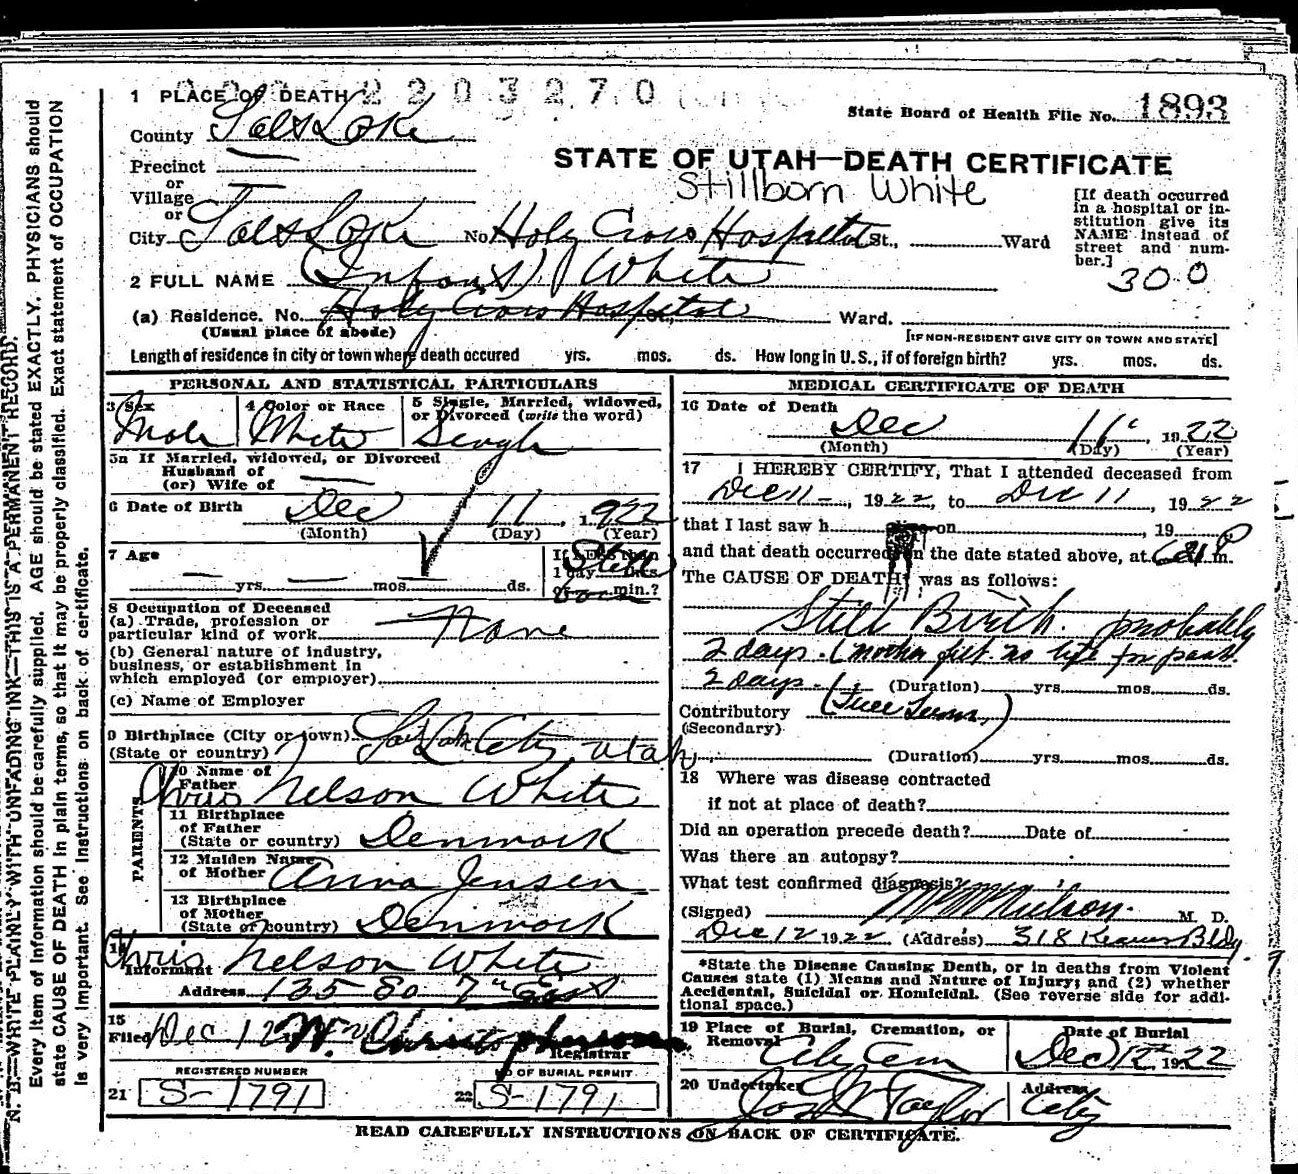 1 PLACE OF DEATH 2203270
State Board of Health File No. 1893
County Salt Lake
STATE OF UTAH—DEATH CERTIFICATE
Stillborn White
Precinct
or
Village
or
City Salt Lake No. Holy Cross Hospital St., Ward
[If death occurred
in a hospital or in-
stitution give its
NAME instead of
street and num-
ber.]
300
2 FULL NAME (Infant) White
(a) Residence. No. Holy Cross Hospital St., Ward.
(Usual place of abode)
[IF NON-RESIDENT GIVE CITY OR TOWN AND STATE]
Length of residence in city or town where death occured yrs. mos. ds. How long in U. S., if of foreign birth? yrs. mos. ds.
PERSONAL AND STATISTICAL PARTICULARS
3 Sex
Male
4 Color or Race
White
5 Single, Married, widowed,
or Divorced (write the word)
Single
5a If Married, widowed, or Divorced
Husband of
(or) Wife of
6 Date of Birth Dec 11, 1922
(Month) (Day) (Year)
7 Age
yrs. mos. ds.
If less than
1 day hrs.
or min.?
Still
born
8 Occupation of Deceased
(a) Trade, profession or
particular kind of work None
(b) General nature of industry,
business, or establishment in
which employed (or employer)
(c) Name of Employer
9 Birthplace (City or town) Salt Lake City Utah
(State or country)
PARENTS
10 Name of
Father Chris Nelson White
11 Birthplace
of Father
(State or country) Denmark
12 Maiden Name
of Mother Anna Jensen
13 Birthplace
of Mother
(State or country) Denmark
14
Informant Chris Nelson White
Address 135 So 7th East
15
Filed Dec 12 Wm Christopherson
Registrar
REGISTERED NUMBER
21 S-1791
NO OF BURIAL PERMIT
22 S-1791
MEDICAL CERTIFICATE OF DEATH
16 Date of Death
Dec 11, 1922
(Month) (Day) (Year)
17 I HEREBY CERTIFY, That I attended deceased from
Dec 11, 1922, to Dec 11, 1922
that I last saw h alive on , 19
and that death occurred on the date stated above, at P m.
The CAUSE OF DEATH was as follows:
Still Birth. probably
2 days. (mother felt no life for past
2 days.) (Duration) yrs. mos. ds.
Contributory (Full Term)
(Secondary)
(Duration) yrs. mos. ds.
18 Where was disease contracted
if not at place of death?
Did an operation precede death? Date of
Was there an autopsy?
What test confirmed diagnosis?
(Signed) Neilson M. D.
Dec 12 1922, (Address) 318 Kearns Bldg.
*State the Disease Causing Death, or in deaths from Violent
Causes state (1) Means and Nature of Injury; and (2) whether
Accidental, Suicidal or Homicidal. (See reverse side for addi-
tional space.)
19 Place of Burial, Cremation, or
Removal City Cem
Date of Burial
Dec 12th 1922
20 Undertaker
Jos Wm Taylor
Address
City
READ CAREFULLY INSTRUCTIONS ON BACK OF CERTIFICATE.
N. B.—WRITE PLAINLY WITH UNFADING INK—THIS IS A PERMANENT RECORD.
Every item of information should be carefully supplied. AGE should be stated EXACTLY. PHYSICIANS should
state CAUSE OF DEATH in plain terms, so that it may be properly classified. Exact statement of OCCUPATION
is very important. See instructions on back of certificate.